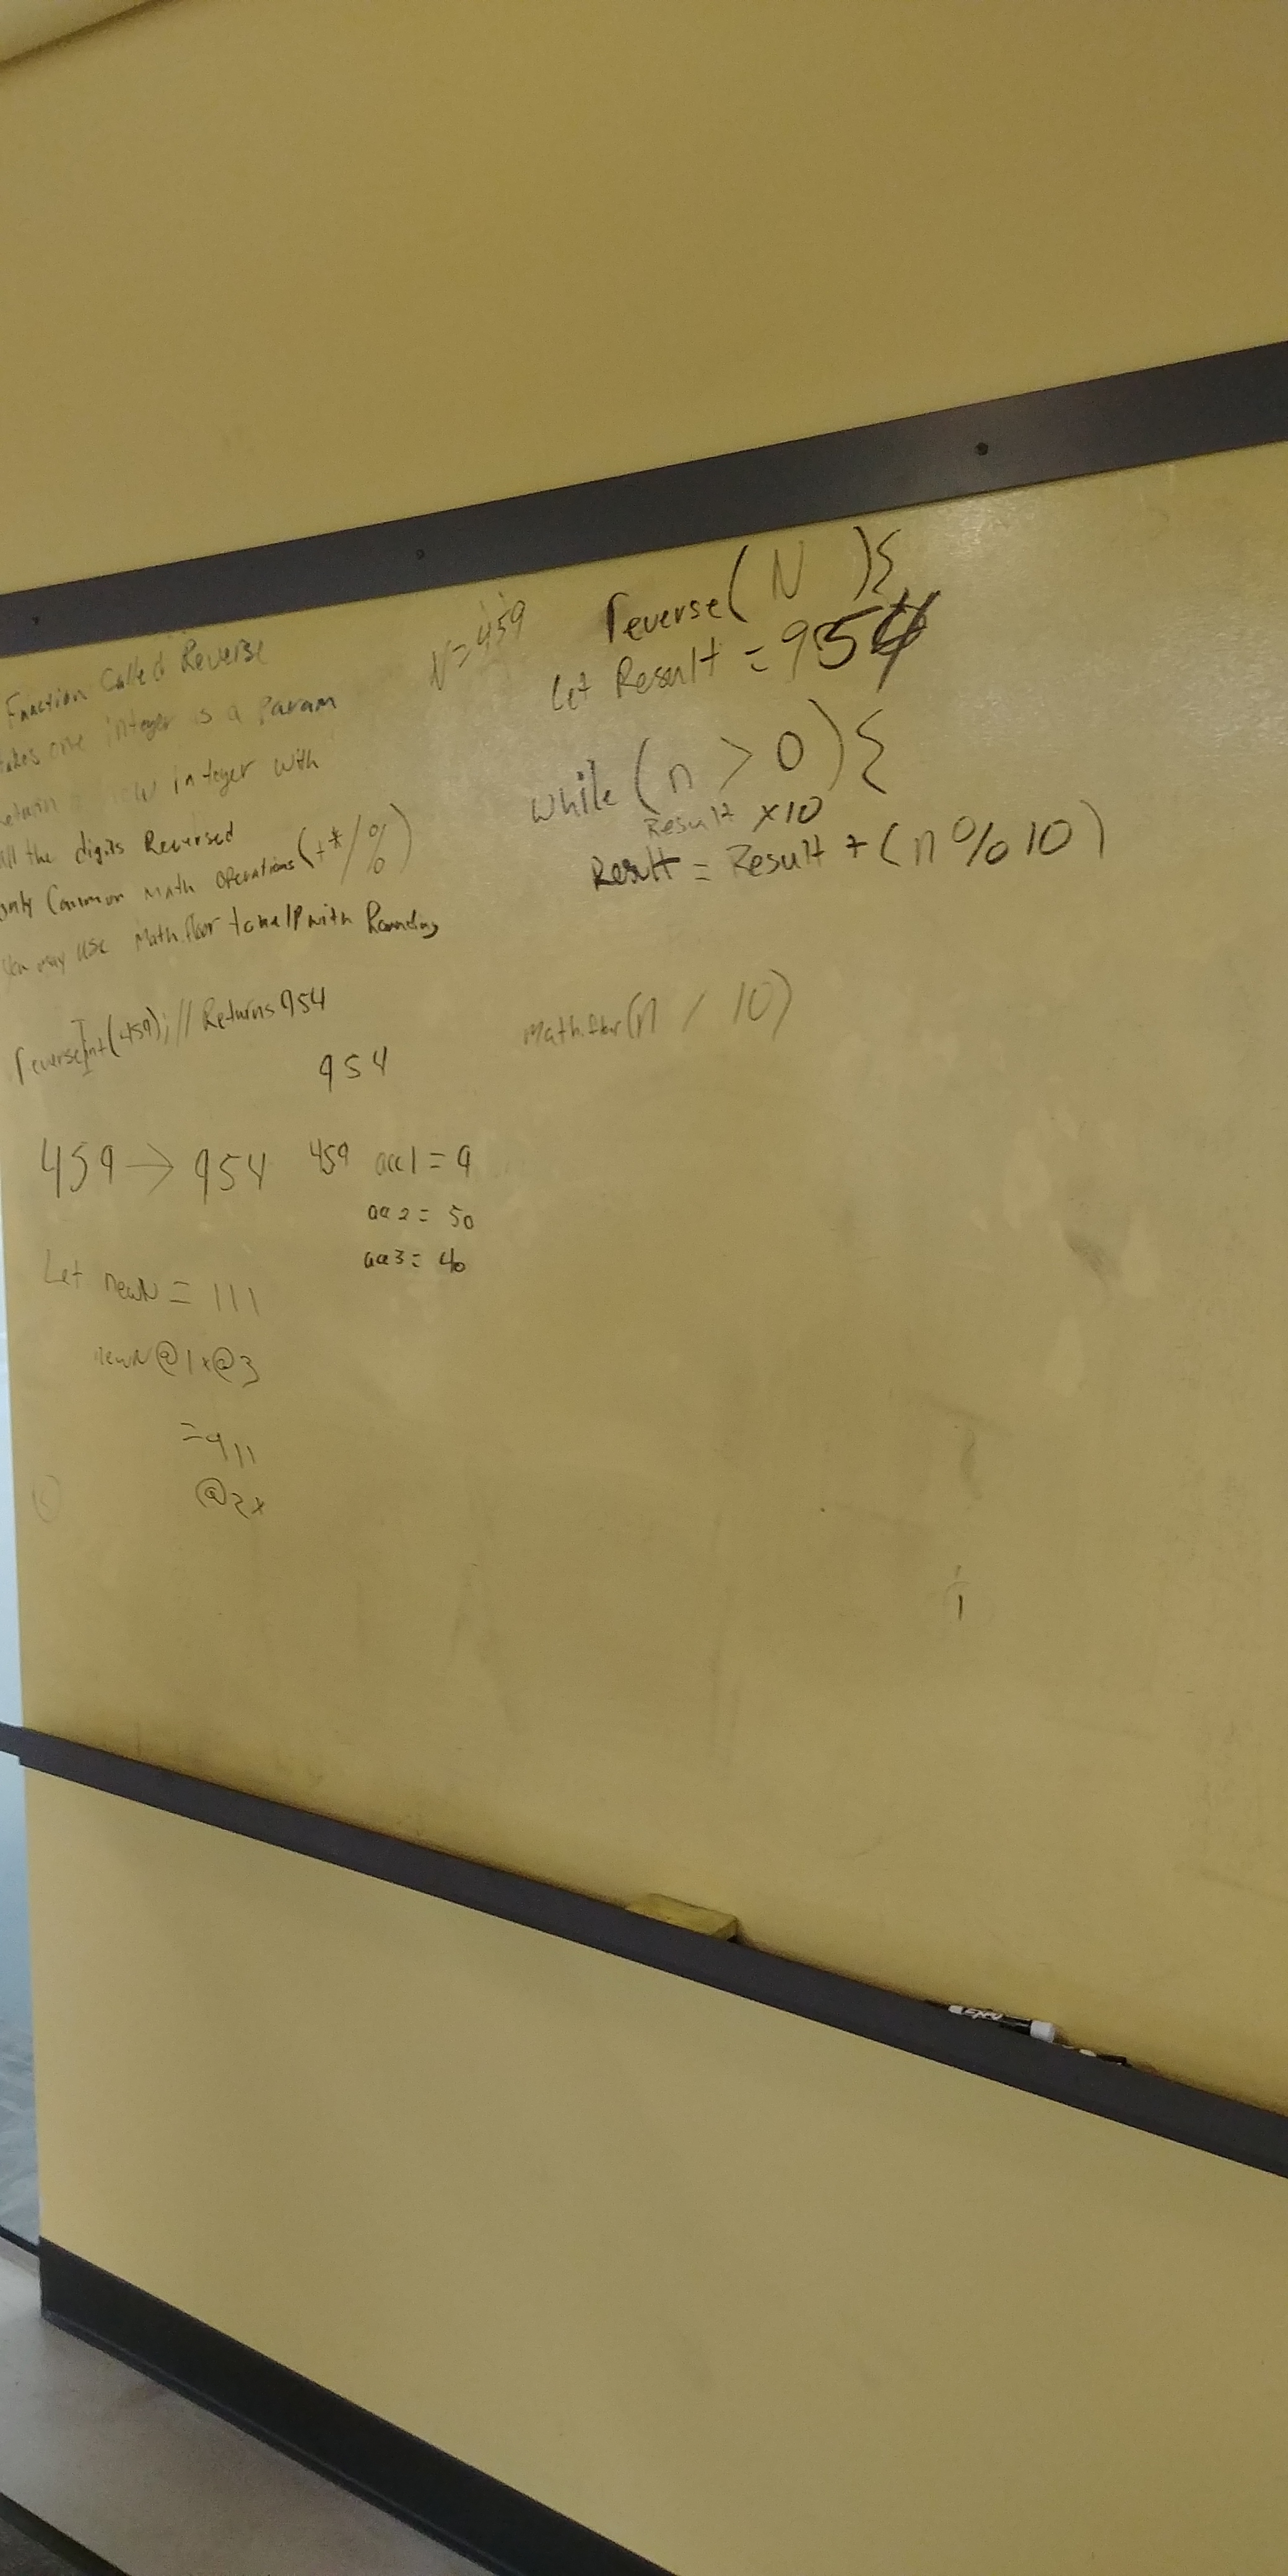 Function Called Reverse
takes one integer as a Param
Return a new integer with
all the digits Reversed
only Common math operations (+*/%)
you may use Math.floor to help with Rounding
reverseInt(459); // Returns 954
954
459 → 954
459 acc1 = 9
acc2 = 50
acc3 = 40
Let newN = 111
newN @1x@3
= 911
@2x
N = 459
reverse( N ){
Let Result = 954
while (n > 0){
Result x10
Result = Result + (n % 10)
Math.floor(n / 10)
EXPO